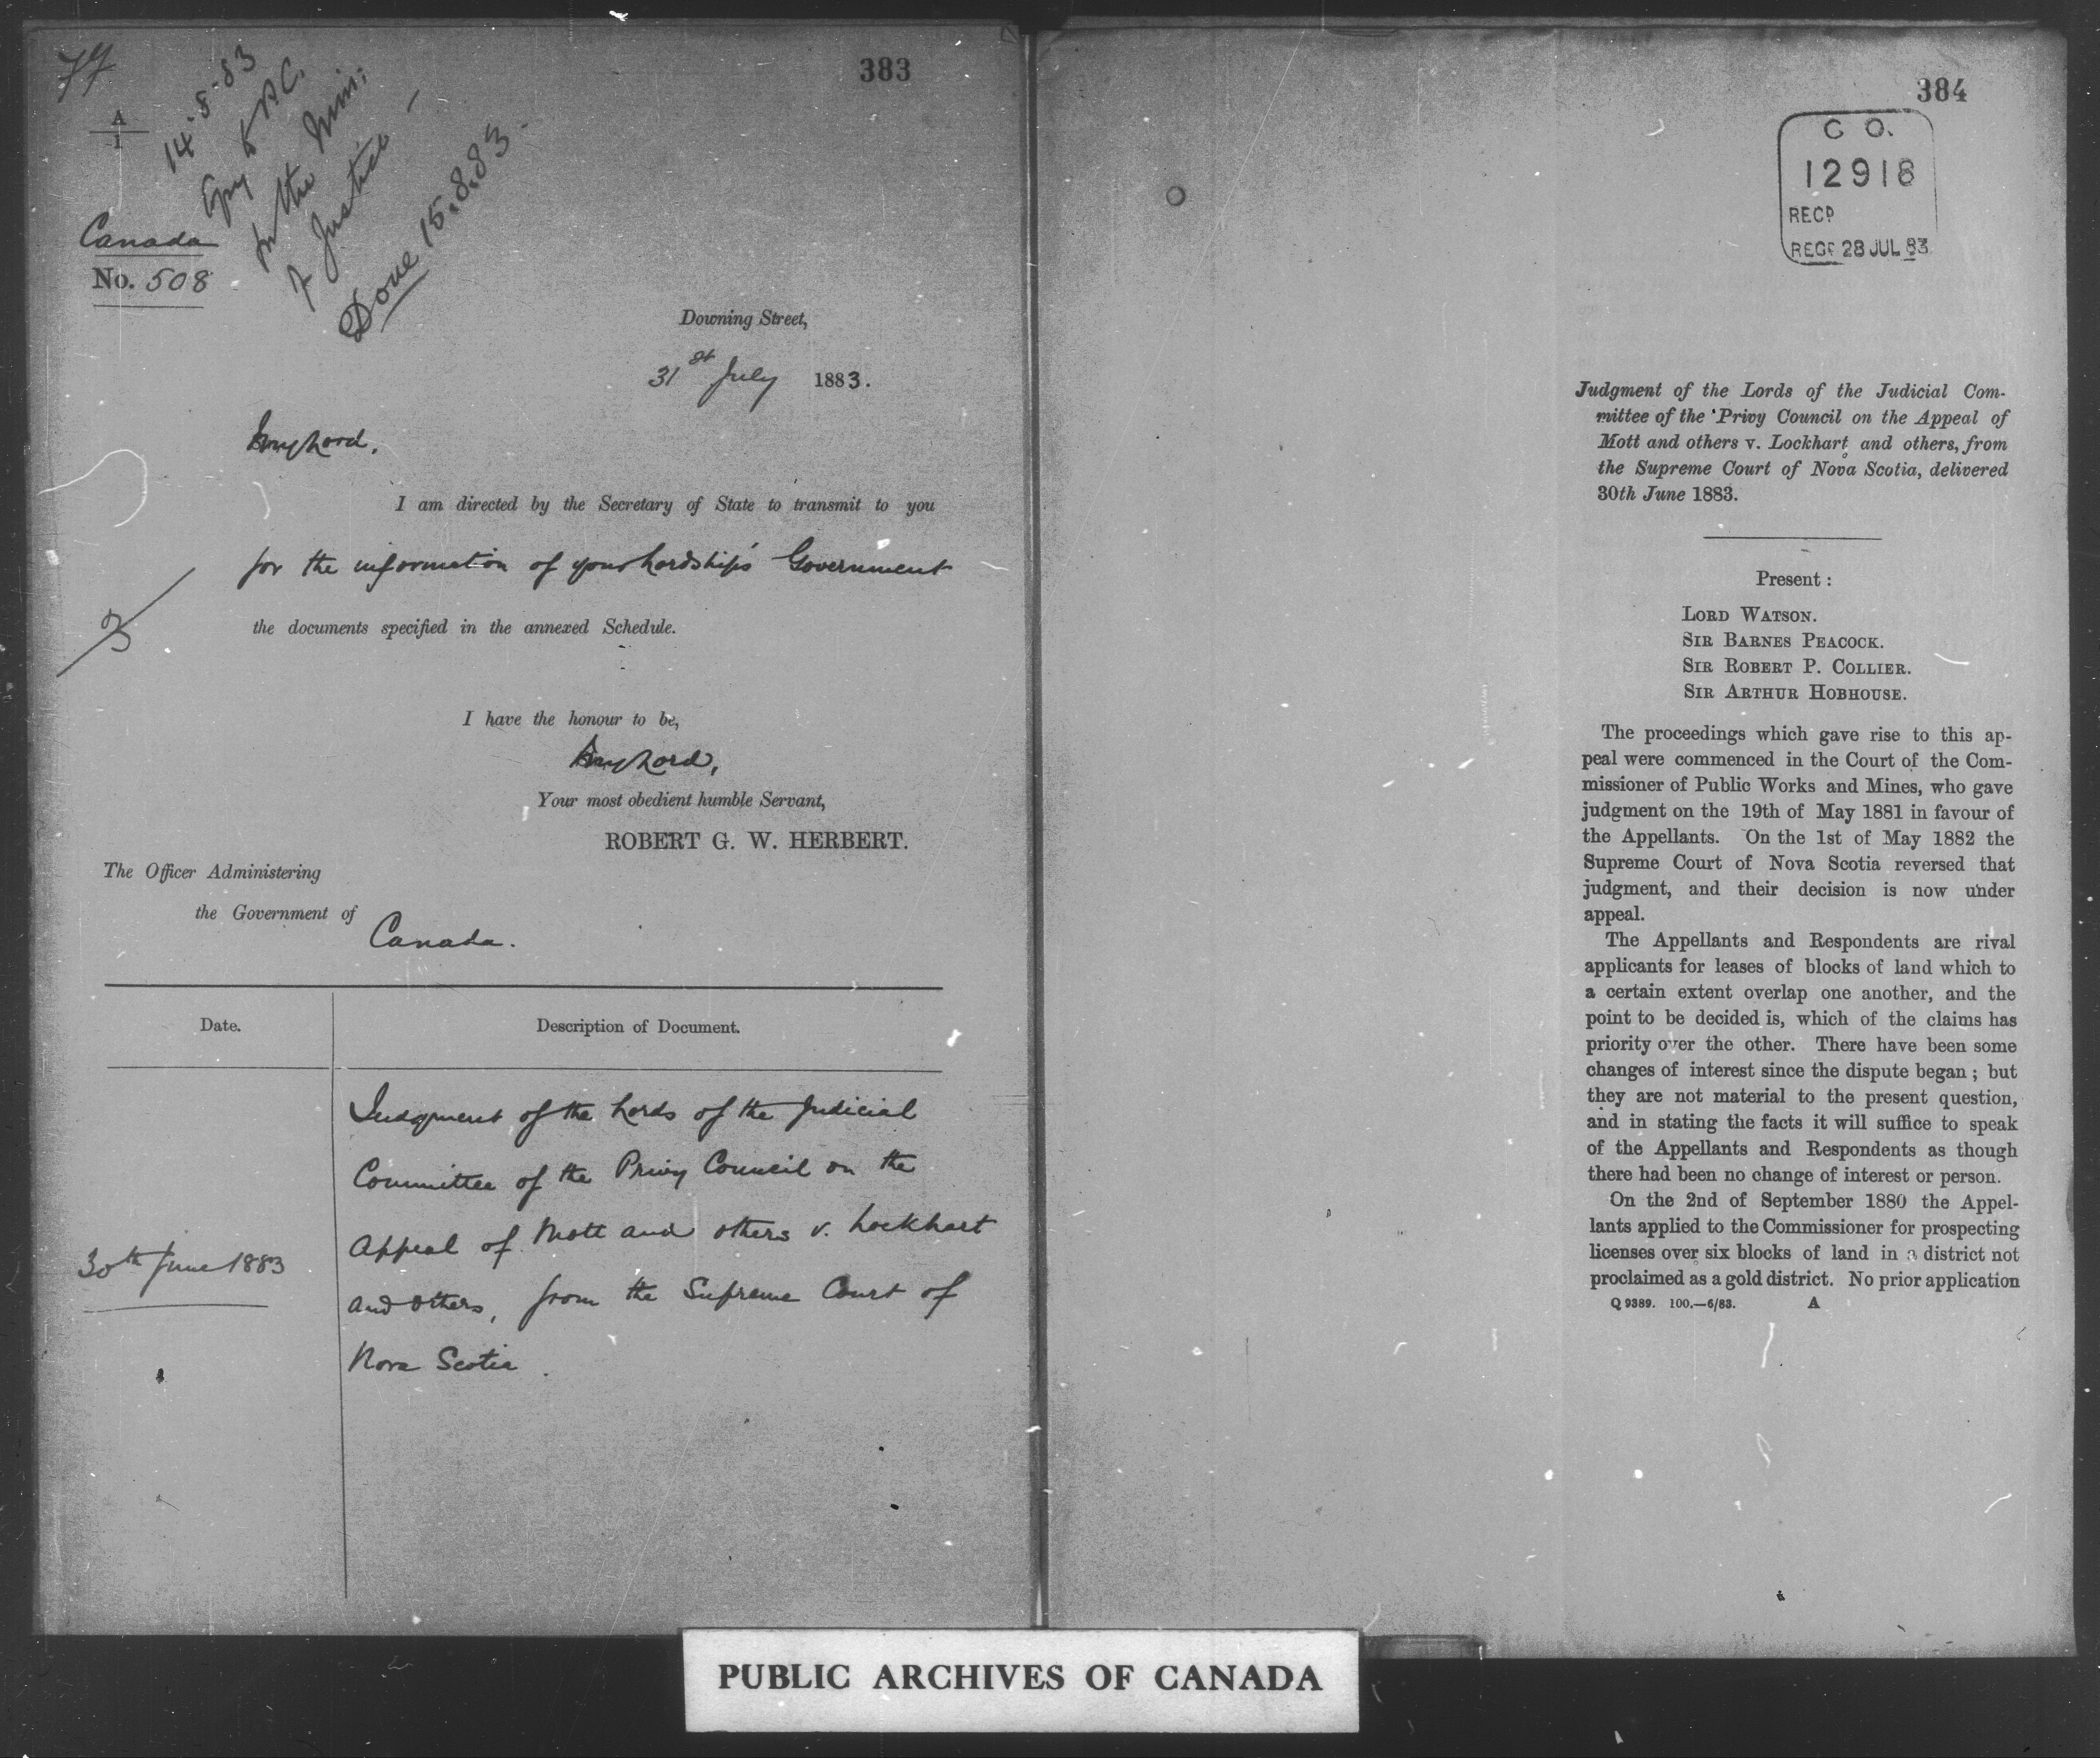 383
A
1
14-8-83
Copy to P.C.
for the Min:
of Justice -
Done 15.8.83.
Canada
No. 508
Downing Street,
31st July 1883.
My Lord,
I am directed by the Secretary of State to transmit to you
for the information of your Lordship's Government
the documents specified in the annexed Schedule.
I have the honour to be,
My Lord,
Your most obedient humble Servant,
ROBERT G. W. HERBERT.
The Officer Administering
the Government of
Canada.
Date.
Description of Document.
30th June 1883
Judgment of the Lords of the Judicial
Committee of the Privy Council on the
Appeal of Mott and others v. Lockhart
and others, from the Supreme Court of
Nova Scotia.
384
C O.
12918
RECD
REGD 28 JUL 83
Judgment of the Lords of the Judicial Com-
mittee of the Privy Council on the Appeal of
Mott and others v. Lockhart and others, from
the Supreme Court of Nova Scotia, delivered
30th June 1883.
Present :
LORD WATSON.
SIR BARNES PEACOCK.
SIR ROBERT P. COLLIER.
SIR ARTHUR HOBHOUSE.
The proceedings which gave rise to this ap-
peal were commenced in the Court of the Com-
missioner of Public Works and Mines, who gave
judgment on the 19th of May 1881 in favour of
the Appellants. On the 1st of May 1882 the
Supreme Court of Nova Scotia reversed that
judgment, and their decision is now under
appeal.
The Appellants and Respondents are rival
applicants for leases of blocks of land which to
a certain extent overlap one another, and the
point to be decided is, which of the claims has
priority over the other. There have been some
changes of interest since the dispute began ; but
they are not material to the present question,
and in stating the facts it will suffice to speak
of the Appellants and Respondents as though
there had been no change of interest or person.
On the 2nd of September 1880 the Appel-
lants applied to the Commissioner for prospecting
licenses over six blocks of land in a district not
proclaimed as a gold district. No prior application
Q 9389. 100.—6/83. A
PUBLIC ARCHIVES OF CANADA